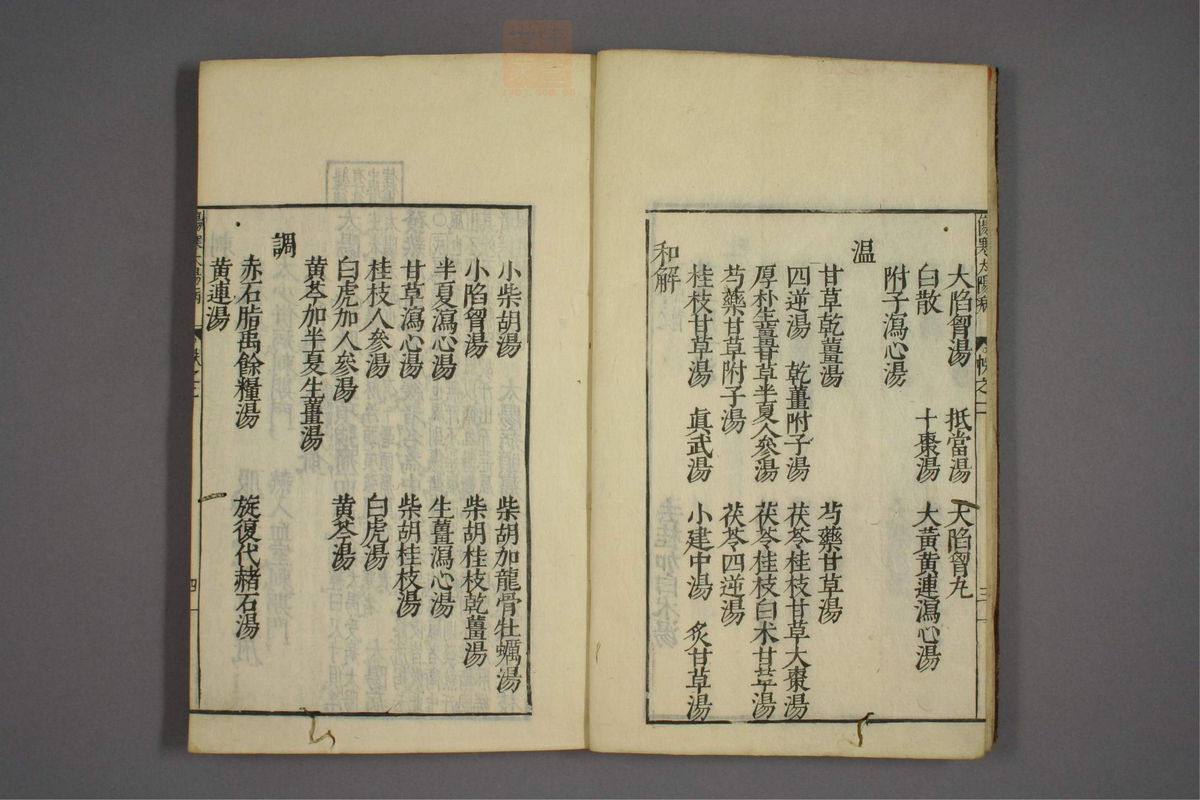 大陷胷湯 抵當湯 大陷胷丸
白散 十棗湯 大黃黃連瀉心湯
附子瀉心湯
温
甘草乾薑湯 芍藥甘草湯
四逆湯 乾薑附子湯 茯苓桂枝甘草大棗湯
厚朴生薑甘草半夏人參湯 茯苓桂枝白朮甘草湯
芍藥甘草附子湯 茯苓四逆湯
桂枝甘草湯 眞武湯 小建中湯 炙甘草湯
和解
小柴胡湯 柴胡加龍骨牡蠣湯
小陷胷湯 柴胡桂枝乾薑湯
半夏瀉心湯 生薑瀉心湯
甘草瀉心湯 柴胡桂枝湯
桂枝人參湯 白虎湯
白虎加人參湯 黃芩湯
黃芩加半夏生薑湯
調
赤石脂禹餘糧湯 旋復代赭石湯
黃連湯
四